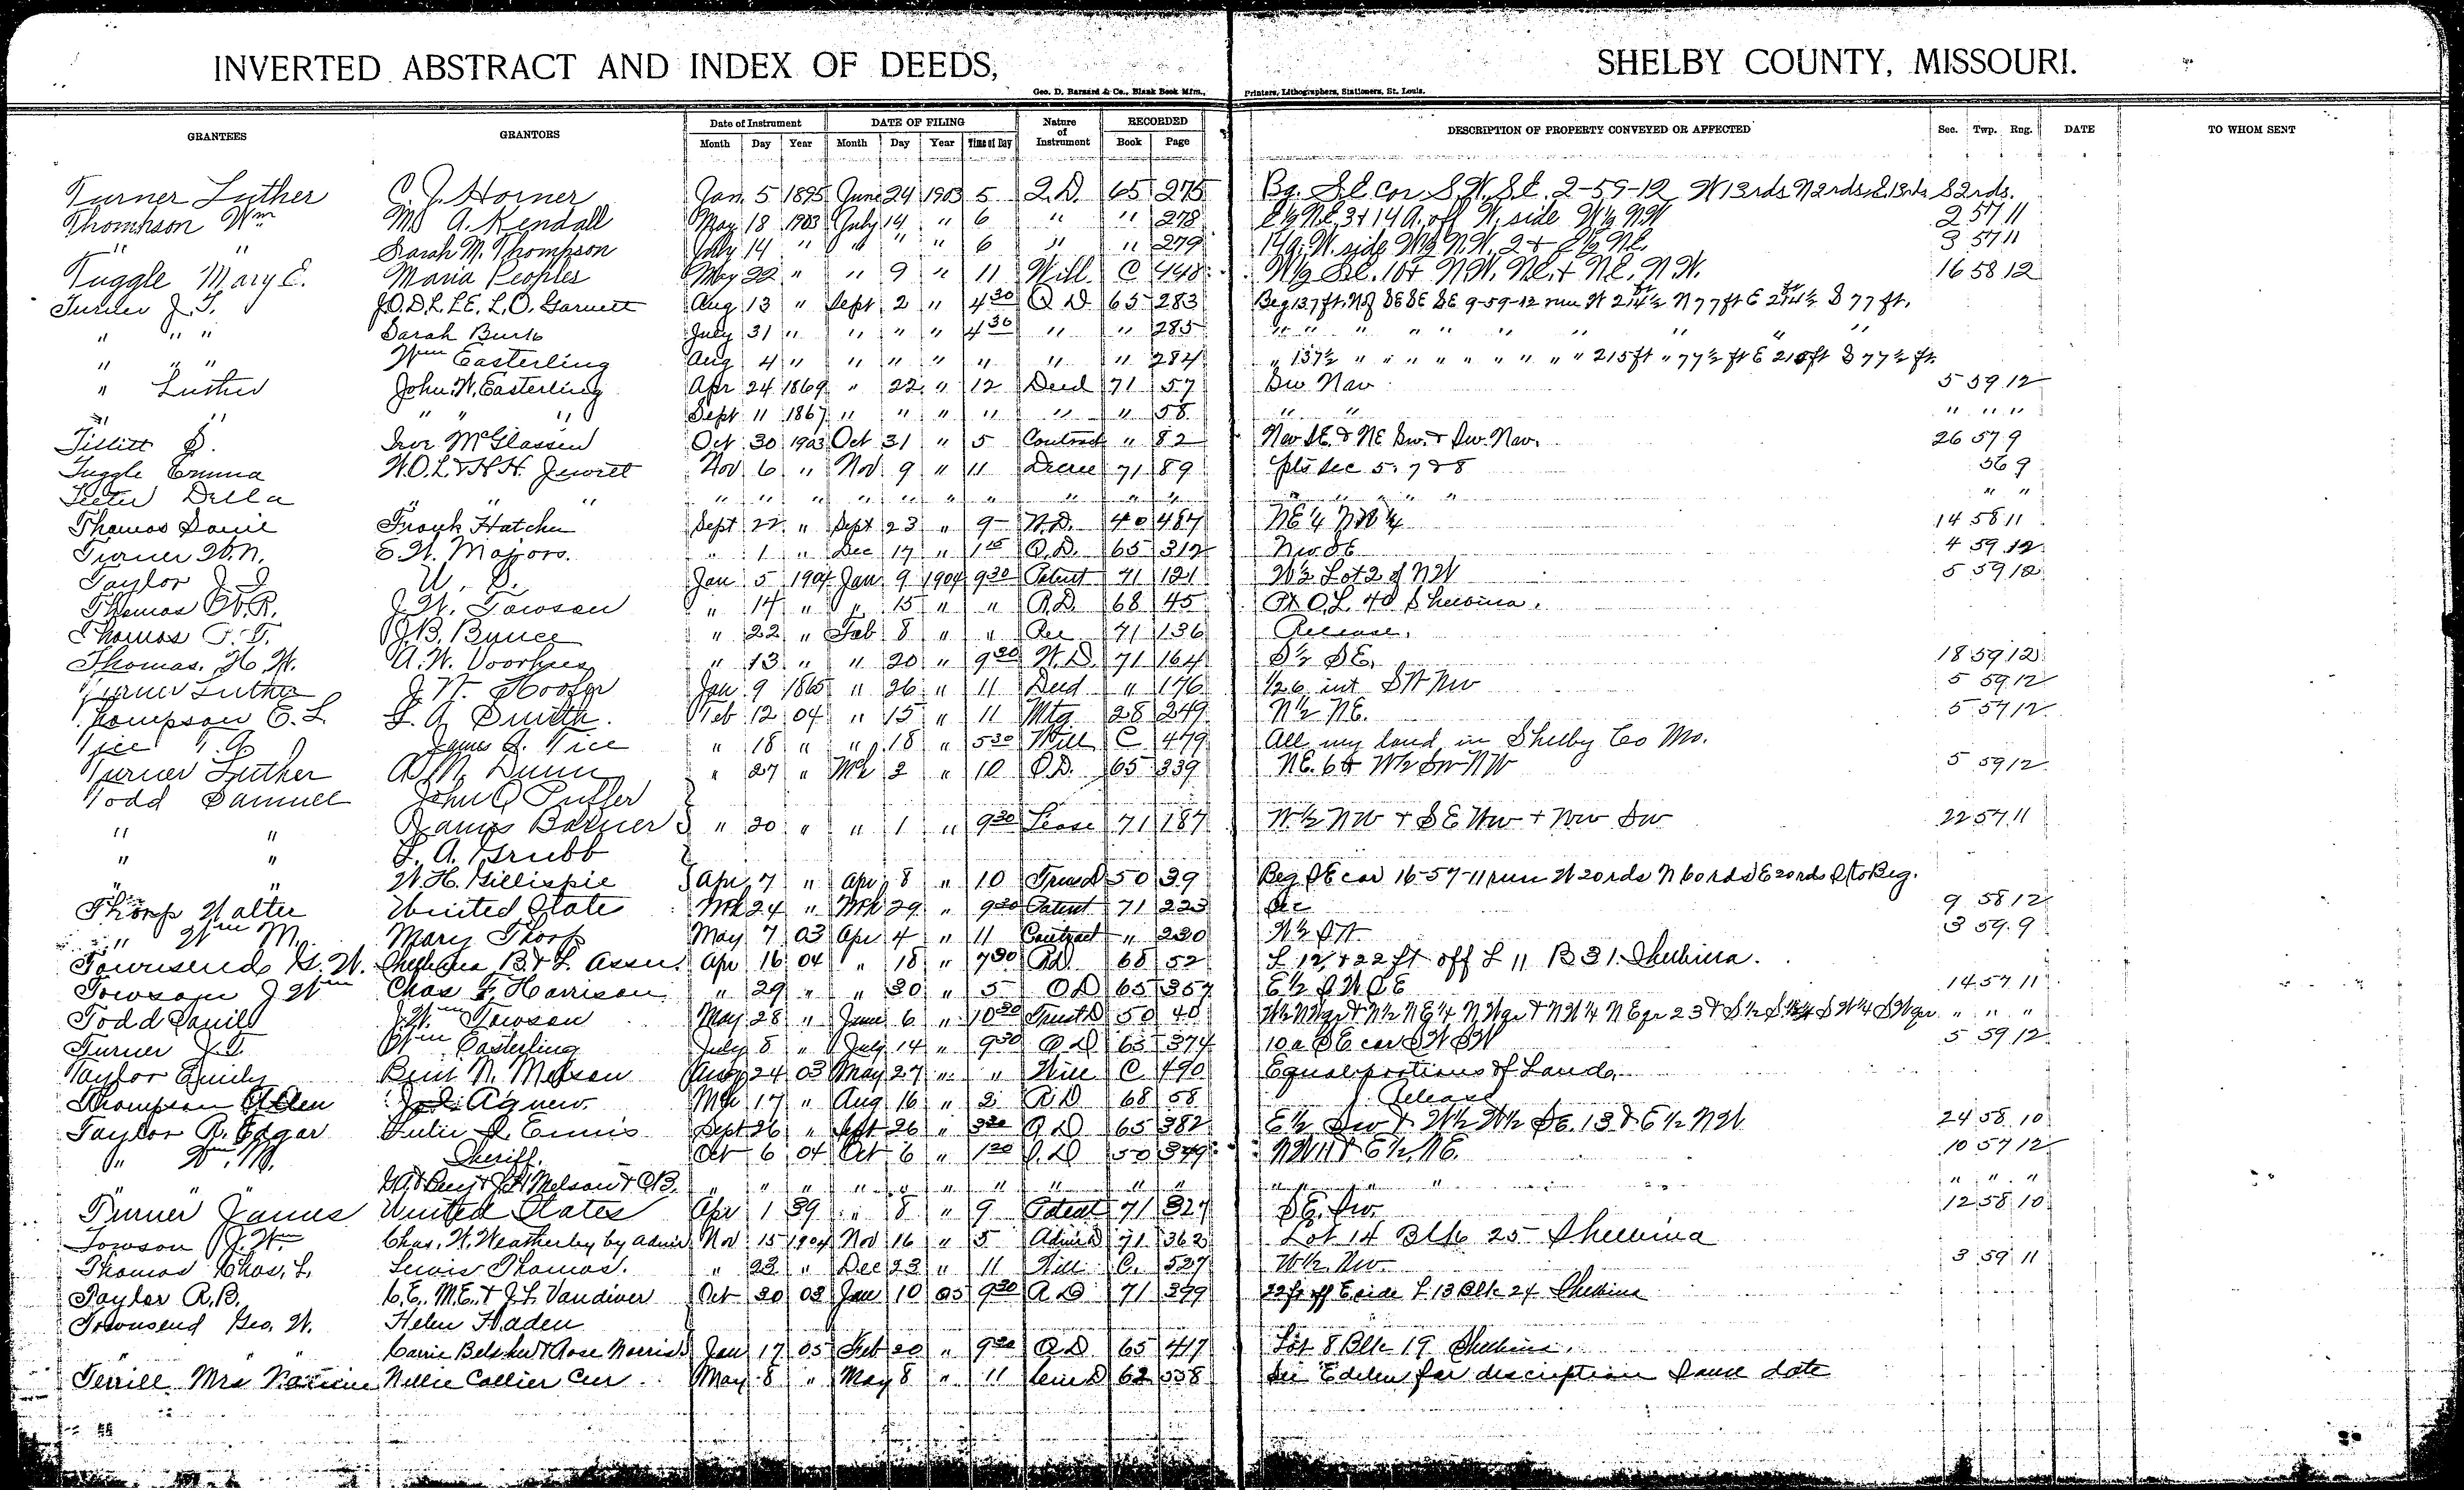 INVERTED ABSTRACT AND INDEX OF DEEDS, SHELBY COUNTY, MISSOURI.
Geo. D. Barnard & Co., Blank Book Mfrs., Printers, Lithographers, Stationers, St. Louis.
GRANTEES GRANTORS Date of Instrument DATE OF FILING Nature of Instrument RECORDED DESCRIPTION OF PROPERTY CONVEYED OR AFFECTED Sec. Twp. Rng. DATE TO WHOM SENT
Month Day Year Month Day Year Time of Day Book Page
Turner Luther C. J. Horner Jan. 5 1895 June 24 1903 5 Q.D. 65 275 Bg. SE cor S.W. SE. 2-59-12 W 13rds N 2rds E 13rds S 2rds.
Thompson Wm M. A. Kendall May 18 1903 July 14 " 6 " " 278 E½ N.E. 3 & 14 A. off W. side W½ NW 2 57 11
" " Sarah M. Thompson July 14 " " " " 6 " " 279 14a. W. side W½ N.W. 2 & E½ NE. 3 57 11
Tuggle Mary E. Maria Peoples May 22 " " 9 " 11 Will C 448 W½ SE. 10 & NW. NE. & NE. N.W. 16 58 12
Turner J. T. J.O.D.L.L.E. L.O. Garnett Aug 13 " Sept 2 " 4 30 Q D 65 283 Beg 137 ft. N of SE SE SE 9-59-12 run W 214½ ft N 77 ft E 214½ ft S 77 ft.
" " " Sarah Burk July 31 " " " " 4 30 " " 285 " " " " " " " " "
" " " Wm Easterling Aug 4 " " " " " " " 284 " 137½ " " " " " " " " 215 ft " 77½ ft E 215 ft S 77½ ft.
" Luther John W. Easterling Apr 24 1869 " 22 " 12 Deed 71 57 Sw. Nw 5 59 12
" " " " " Sept 11 1867 " " " " " " 58 " " " " "
Tillitt S. McGlassen Oct 30 1903 Oct 31 " 5 Contract " 82 Nw SE & NE Sw. & Sw. Nw. 26 57 9
Tuggle Emma W.O.L. & H.H. Jewett Nov 6 " Nov. 9 " 11 Decree 71 89 pts sec 5, 7 & 8 56 9
Teeter Della " " " " " " " " " " " " " " " " " " "
Thomas Daniel Frank Hatcher Sept 22 " Sept 23 " 9 W.D. 40 487 NE¼ NW¼ 14 58 11
Turner W. N. E. W. Majors. " 1 " Dec 17 " 1 15 Q.D. 65 312 Nw SE 4 59 12
Taylor J. J. U. S. Jan 5 1904 Jan 9 1904 9 30 Patent 71 121 W½ Lot 2 of NW 5 59 12
Thomas W. R. J. W. Towson " 14 " " 15 " " Q.D. 68 45 Pt O.L. 40 Shelbina.
Thomas J. B. Bunce " 22 " Feb 8 " " Rel 71 136 Release.
Thomas. H. W. A. W. Voorhees " 13 " " 20 " 9 30 W.D. 71 164 S½ SE. 18 59 12
Turner Luther J. W. Hoofer Jan 9 1865 " 26 " 11 Deed " 176 1/26 int SW Nw 5 59 12
Thompson E. L. L. A. Smith. Feb 12 04 " 15 " 11 Mtg 28 249 N½ NE. 5 57 12
Tice James A. Tice " 18 " " 18 " 5 30 Will C 479 All my land in Shelby Co Mo.
Turner Luther A. M. Dunn " 27 " Mch 2 " 10 Q.D. 65 339 NE. 6 & W½ Sw NW 5 59 12
Todd Samuel John Q Puffer
" " James Barner " 20 " " 1 " 9 30 Lease 71 187 N½ NW & SE Nw & Nw Sw 22 57 11
" " L. A. Grubb
" " W. H. Gillispie Apr 7 " Apr 8 " 10 Trust D 50 39 Beg SE cor 16-57-11 run W 20rds N 60rds E 20rds S to Beg.
Thorp Walter United State Mch 24 " Mch 29 " 9 30 Patent 71 223 9 58 12
" Wm M. Mary Thorp May 7 03 Apr 4 " 11 Contract " 230 3 59 9
Townsend G. W. Shelbina B. & L. Assn. Apr 16 04 " 18 " 7 30 68 52 L 12, & 22 ft off L 11 B 31 Shelbina.
Towson J Wm Chas F. Harrison " 29 " " 30 " 5 Q D 65 357 E½ SW SE 14 57 11
Todd Daniel J. Wm Towson May 28 " June 6 " 10 30 Trust D 50 40 " " "
Turner J. T. Wm Easterling July 8 " July 14 " 9 30 Q D 65 374 10 a SE cor SW SW 5 59 12
Taylor Emily Benj. N. Melson Aug 24 03 May 27 " " Will C. 490 Equal portions of Land.
Thompson Agnew. 17 " Aug 16 " 2 68 58 Release
Taylor R. Edgar Julie Ennis Sept 26 " Sept 26 " 3 30 Q D 65 382 E½ Sw & W½ W½ SE. 13 & E½ NW 24 58 10
" Wm. M. Sheriff. Oct 6 04 Oct 6 " 1 30 50 349 NW 11 & E½ NE. 10 57 12
" " " " " " " " " " " " " " " "
Turner James United States Apr 1 39 " 8 " 9 Patent 71 327 SE. Sw. 12 58 10
Towson J. Wm Chas. W. Weatherby by admr Nov 15 1904 Nov 16 " 5 Admr D 71 362 Lot 14 Blk 25 Shelbina
Thomas Chas. L. Lewis Thomas. " 23 " Dec 23 " 11 Will C. 527 W½. Nw. 3 59 11
Taylor R. B. C. E. M. E. & J. L. Vandiver Oct 20 03 Jan 10 05 9 30 71 399 22 ft off E side L 13 Blk 24 Shelbina
Townsend Geo. W. Helen Haden
" " Carrie Belsher & Rose Norris Jan 17 05 Feb 20 " 9 30 Q D 65 417 Lot 8 Blk 19 Shelbina.
Terrill Mrs Nannie Nellie Collier Cur May 8 " May 8 " 11 62 558 See Edelen for description same date